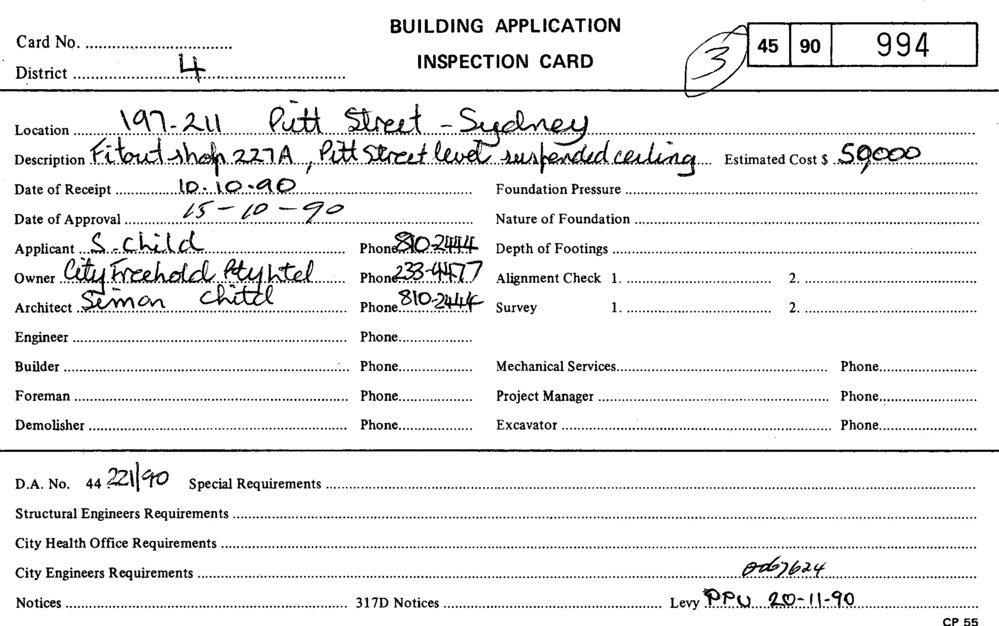 BUILDING APPLICATION
Card No.
3 45 90 994
INSPECTION CARD
District 4
Location 197-211 Pitt Street - Sydney
Description Fitout shop 227A, Pitt Street level suspended ceiling Estimated Cost $ 50,000
Date of Receipt 10.10.90 Foundation Pressure
Date of Approval 15-10-90 Nature of Foundation
Applicant S. Child Phone 810-2444 Depth of Footings
Owner City Freehold Pty Ltd Phone 233-4477 Alignment Check 1. 2.
Architect Simon Child Phone 810-2444 Survey 1. 2.
Engineer Phone
Builder Phone Mechanical Services Phone
Foreman Phone Project Manager Phone
Demolisher Phone Excavator Phone
D.A. No. 44 221/90 Special Requirements
Structural Engineers Requirements
City Health Office Requirements
City Engineers Requirements
Notices 317D Notices Levy PPU 20-11-90
CP 55